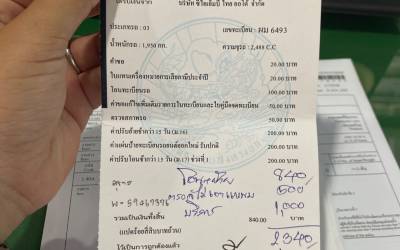 ได้รับเงินจาก บริษัท ซีไอเอ็มบี ไทย ออโต้ จำกัด
ประเภทรถ : 03 เลขทะเบียน : ผม 6493
น้ำหนักรถ : 1,950 กก. ความจุรถ : 2,488 C.C
ค่าขอ 20.00 บาท
ใบแทนเครื่องหมายการเสียภาษีประจำปี 20.00 บาท
โอนทะเบียนรถ 100.00 บาท
ค่าขอแก้ไขเพิ่มเติมรายการในทะเบียนและใบคู่มือจดทะเบียน 50.00 บาท
ตรวจสภาพรถ 50.00 บาท
ค่าปรับย้ายช้ากว่า 15 วัน (ม.16) 200.00 บาท
ค่าแผ่นป้ายทะเบียนรถยนต์ออกใหม่ รับปกติ 200.00 บาท
ค่าปรับโอนช้ากว่า 15 วัน (ม.17) ช่วงที่ 1 200.00 บาท
840/
500
บริการ 1,000 บาท
รวมเป็นเงินทั้งสิ้น 840.00
(แปดร้อยสี่สิบบาทถ้วน)
2340
ไว้เป็นการถูกต้องแล้ว